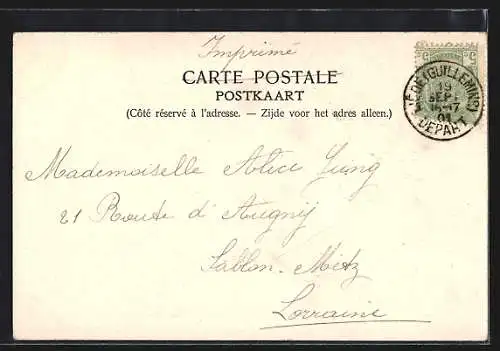 Imprimé
CARTE POSTALE
POSTKAART
(Côté réservé à l'adresse. — Zijde voor het adres alleen.)
(GUILLEMINS)
19
SEPT
01
DEPART
5 5
Mademoiselle Alice
21 Route d'Augny
Sablon-Metz
Lorraine